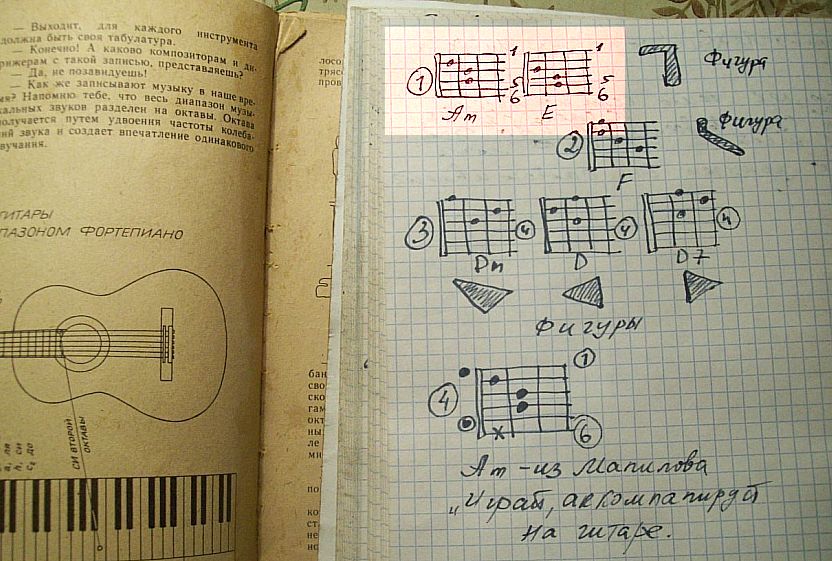 — Выходит, для каждого инструмента
должна быть своя табулатура.
— Конечно! А каково композиторам и ди-
рижерам с такой записью, представляешь?
— Да, не позавидуешь!
— Как же записывают музыку в наше вре-
мя? Напомню тебе, что весь диапазон музы-
кальных звуков разделен на октавы. Октава
получается путем удвоения частоты колеба-
ний звука и создает впечатление одинакового
звучания.
ГИТАРЫ
ПАЗОНОМ ФОРТЕПИАНО
СИ ВТОРОЙ
ОКТАВЫ
лосо
тряс
пров
бан
сво
ско
гам
окт
ны
ле
ми
по
ко
ст
не
но
1 1 1
5 5
6 6
Am E
Фигура
2
F
Фигура
3 4 4 4
Dm D D7
Фигуры
4 1
6
Am - из Манилова
„Играй, аккомпанируй
на гитаре.